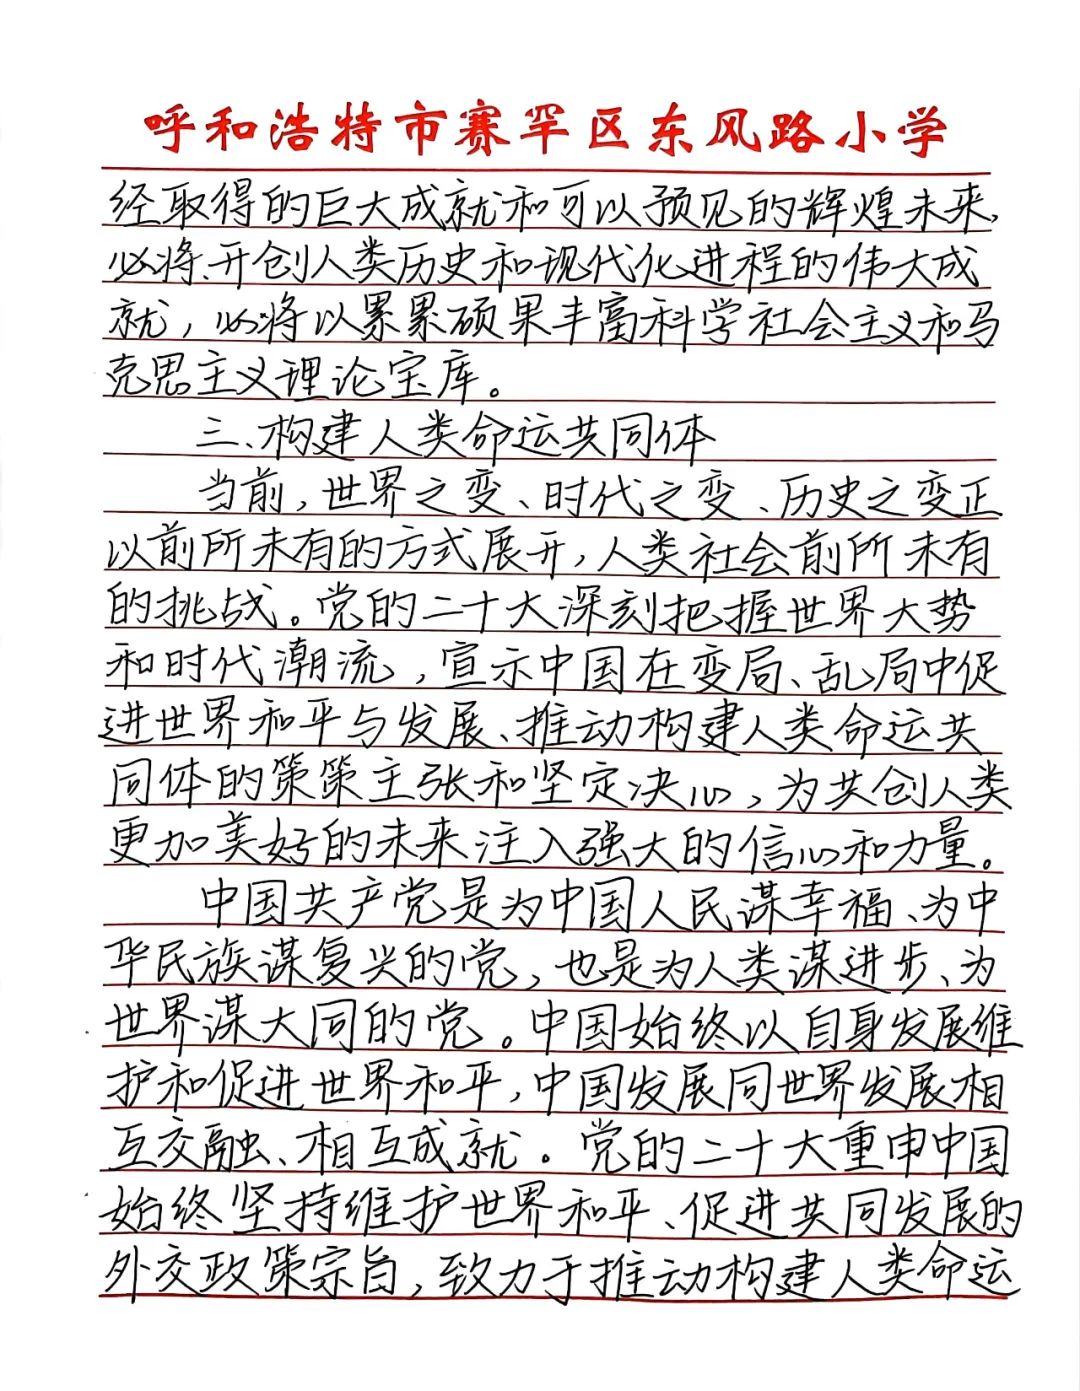 呼和浩特市赛罕区东风路小学
经取得的巨大成就和可以预见的辉煌未来,
必将开创人类历史和现代化进程的伟大成
就，必将以累累硕果丰富科学社会主义和马
克思主义理论宝库。
三、构建人类命运共同体
当前，世界之变、时代之变、历史之变正
以前所未有的方式展开，人类社会前所未有
的挑战。党的二十大深刻把握世界大势
和时代潮流，宣示中国在变局、乱局中促
进世界和平与发展、推动构建人类命运共
同体的策策主张和坚定决心，为共创人类
更加美好的未来注入强大的信心和力量。
中国共产党是为中国人民谋幸福、为中
华民族谋复兴的党，也是为人类谋进步、为
世界谋大同的党。中国始终以自身发展维
护和促进世界和平，中国发展同世界发展相
互交融、相互成就。党的二十大重申中国
始终坚持维护世界和平、促进共同发展的
外交政策宗旨，致力于推动构建人类命运